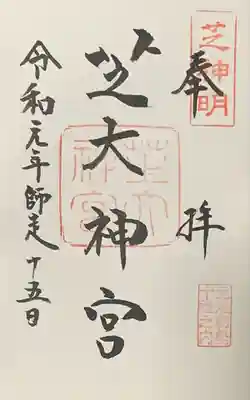 奉拝
芝神明
芝大神宮
芝大神宮
令和元年師走十五日